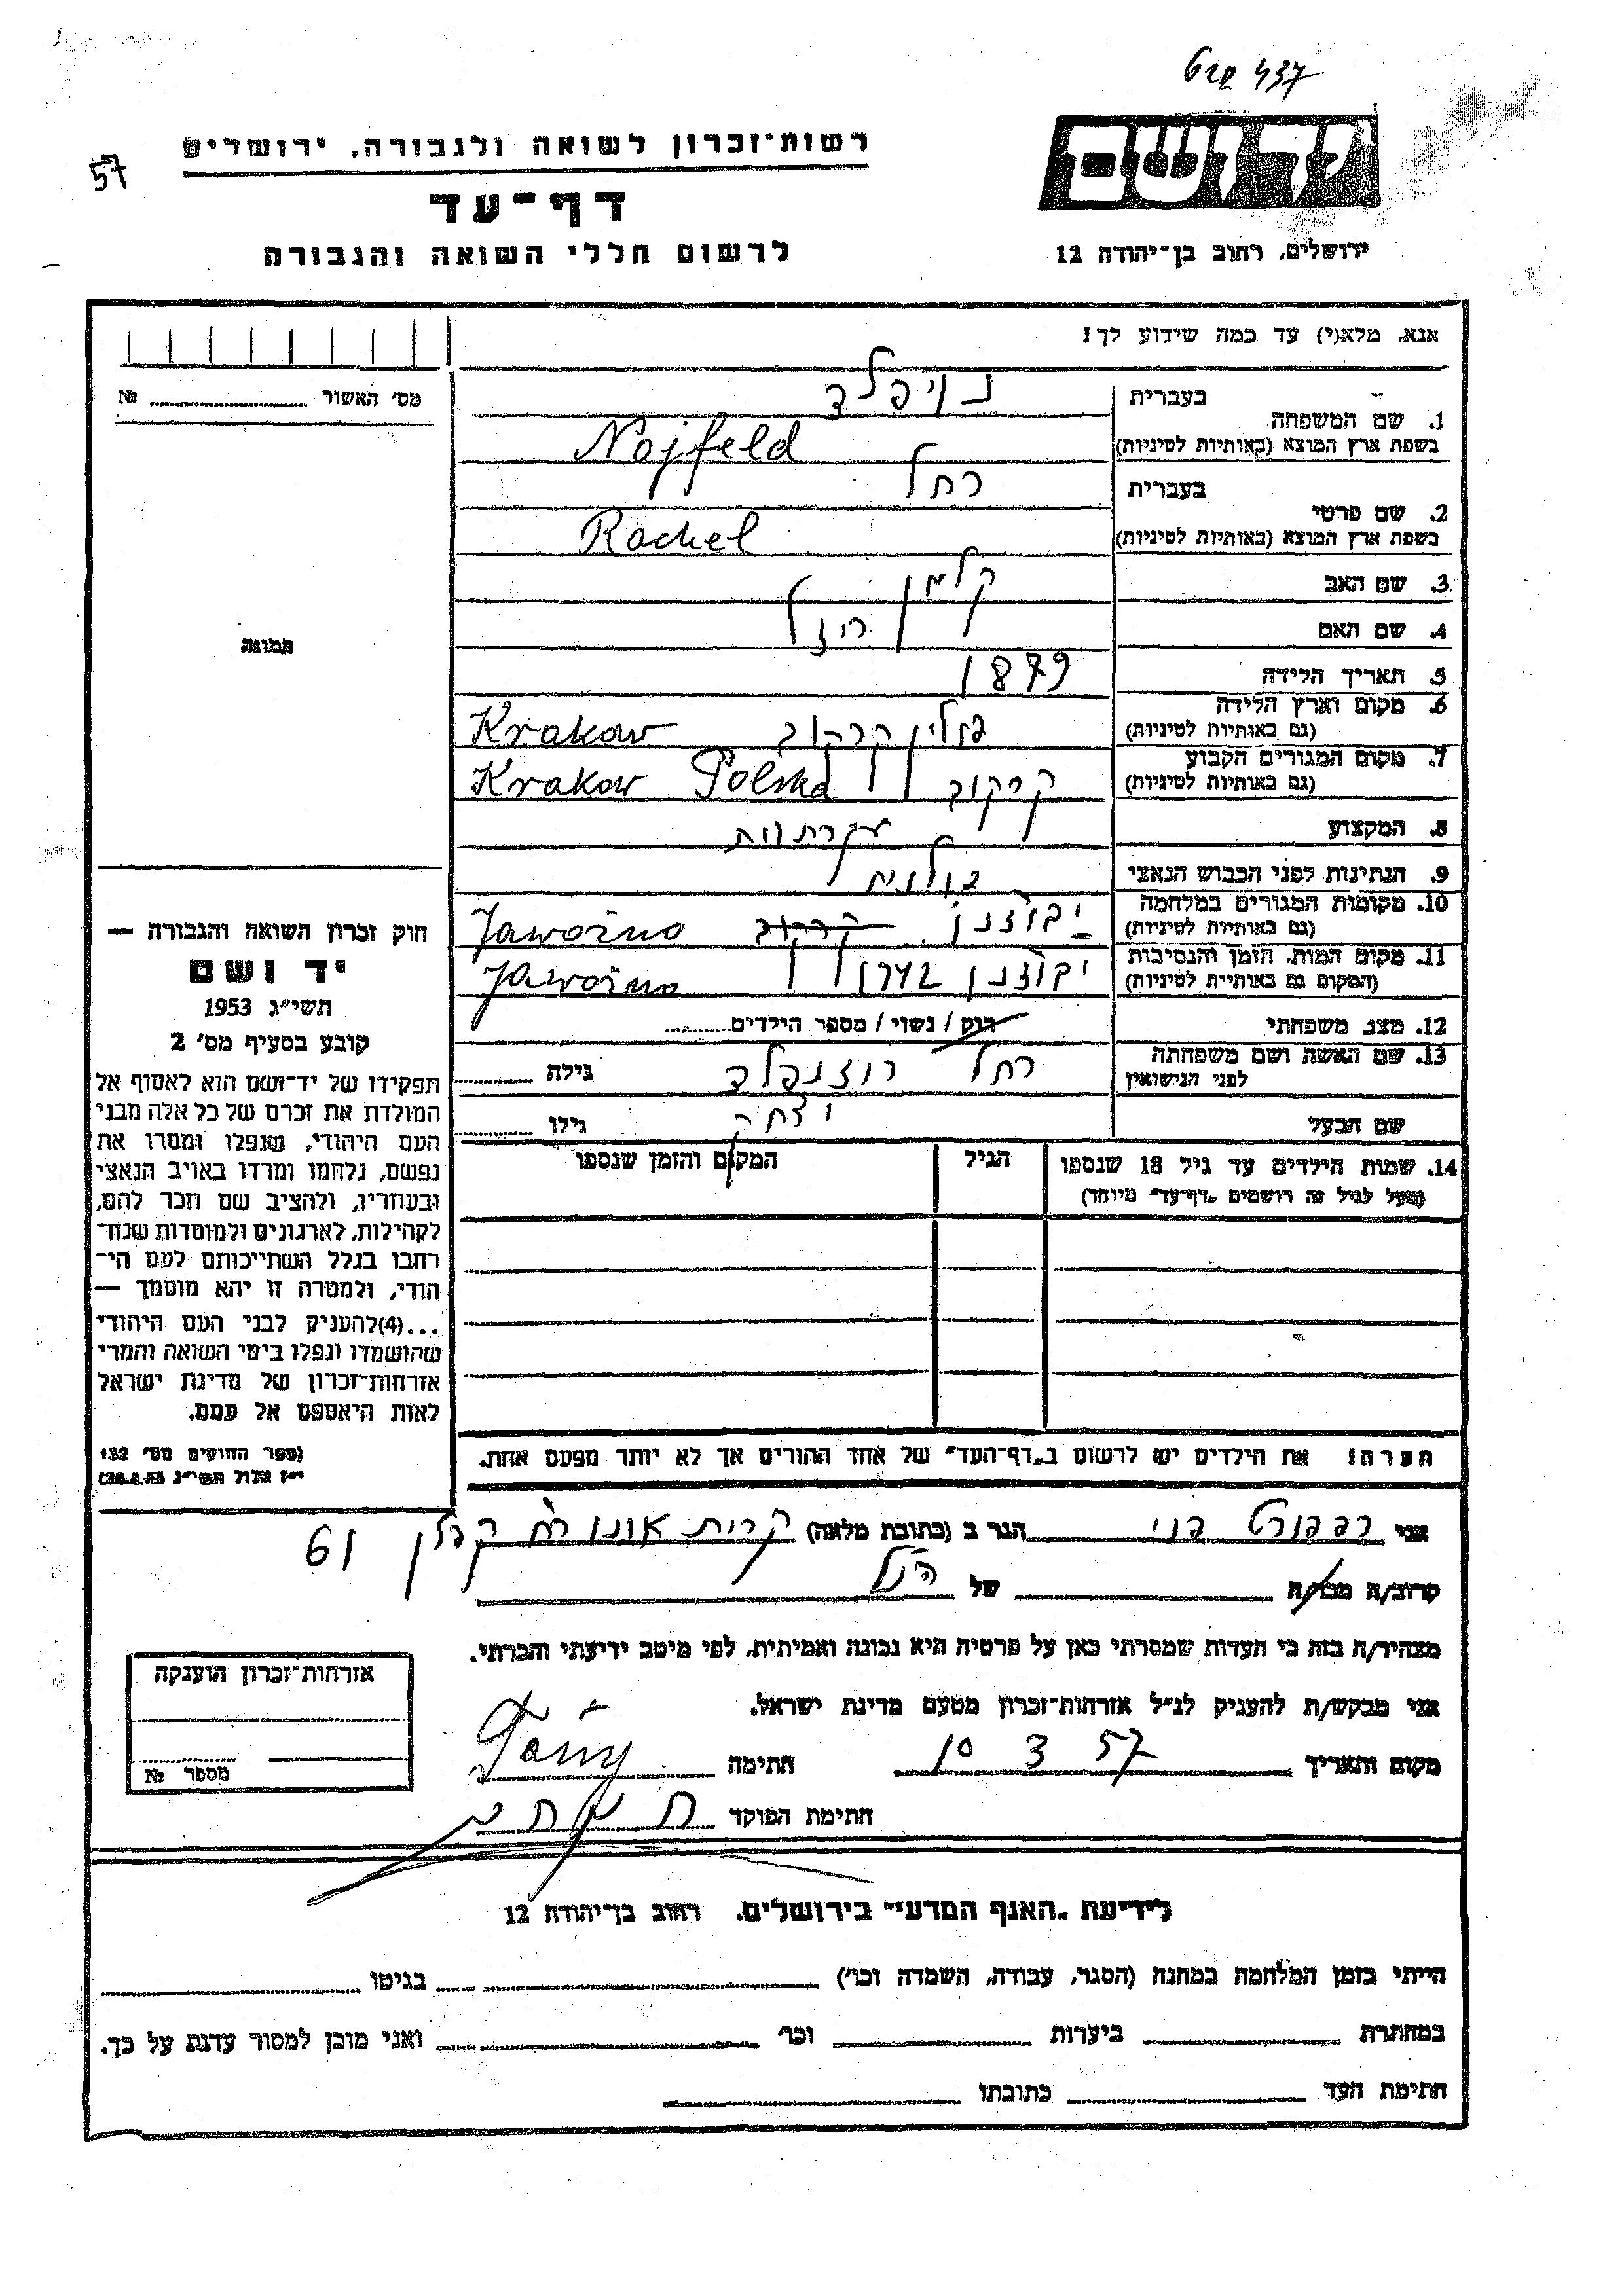 437
57
רשות־זכרון לשואה ולגבורה, ירושלים
יד ושם
דף־עד
לרשום חללי השואה והגבורה
ירושלים, רחוב בן־יהודה 12
אנא, מלא(י) עד כמה שידוע לך!
מס' האשור №
בעברית נויפלד
1. שם המשפחה
בשפת ארץ המוצא (באותיות לטיניות) Nojfeld
בעברית רחל
2. שם פרטי
בשפת ארץ המוצא (באותיות לטיניות) Rachel
3. שם האב קלמן
תמונה
4. שם האם
5. תאריך הלידה 1879
6. מקום וארץ הלידה
(גם באותיות לטיניות) פולין קרקוב Krakow
7. מקום המגורים הקבוע
(גם באותיות לטיניות) קרקוב Krakow Polska
8. המקצוע עקרת בית
9. הנתינות לפני הכבוש הנאצי פולנית
10. מקומות המגורים במלחמה
(גם באותיות לטיניות) קרקוב Jaworzno
11. מקום המות, הזמן והנסיבות
(המקום גם באותיות לטיניות) 1942 Jaworzno
12. מצב משפחתי רוק / נשוי / מספר הילדים
13. שם האשה ושם משפחתה
לפני הנישואין רחל רוזנפלד גילה
שם הבעל יצחק גילו
14. שמות הילדים עד גיל 18 שנספו הגיל המקום והזמן שנספו
(מעל לגיל זה רושמים "דף־עד" מיוחד)
חוק זכרון השואה והגבורה —
יד ושם
תשי"ג 1953
קובע בסעיף מס' 2
תפקידו של יד־ושם הוא לאסוף אל
המולדת את זכרם של כל אלה מבני
העם היהודי, שנפלו ומסרו את
נפשם, נלחמו ומרדו באויב הנאצי
ובעוזריו, ולהציב שם וזכר להם,
לקהילות, לארגונים ולמוסדות שנח־
רבו בגלל השתייכותם לעם הי־
הודי, ולמטרה זו יהא מוסמך —
...(4)להעניק לבני העם היהודי
שהושמדו ונפלו בימי השואה והמרי
אזרחות־זכרון של מדינת ישראל
לאות היאספם אל עמם.
(ספר החוקים מס' 132
י"ז אלול תשי"ג 28.8.53)
הערה! את הילדים יש לרשום ב"דף־העד" של אחד ההורים אך לא יותר מפעם אחת.
אני רפפורט הגר ב (כתובת מלאה) קרית אונו 61
קרוב/ה מכר/ה של הנ"ל
מצהיר/ה בזה כי העדות שמסרתי כאן על פרטיה היא נכונה ואמיתית, לפי מיטב ידיעתי והכרתי.
אני מבקש/ת להעניק לנ"ל אזרחות־זכרון מטעם מדינת ישראל.
מקום ותאריך 10 3 57 חתימה
חתימת הפוקד
אזרחות־זכרון הוענקה
מספר №
לידיעת "האגף המדעי" בירושלים, רחוב בן־יהודה 12
הייתי בזמן המלחמה במחנה (הסגר, עבודה, השמדה וכו') בגיטו
במחתרת ביערות וכו' ואני מוכן למסור עדות על כך.
חתימת העד כתובתו